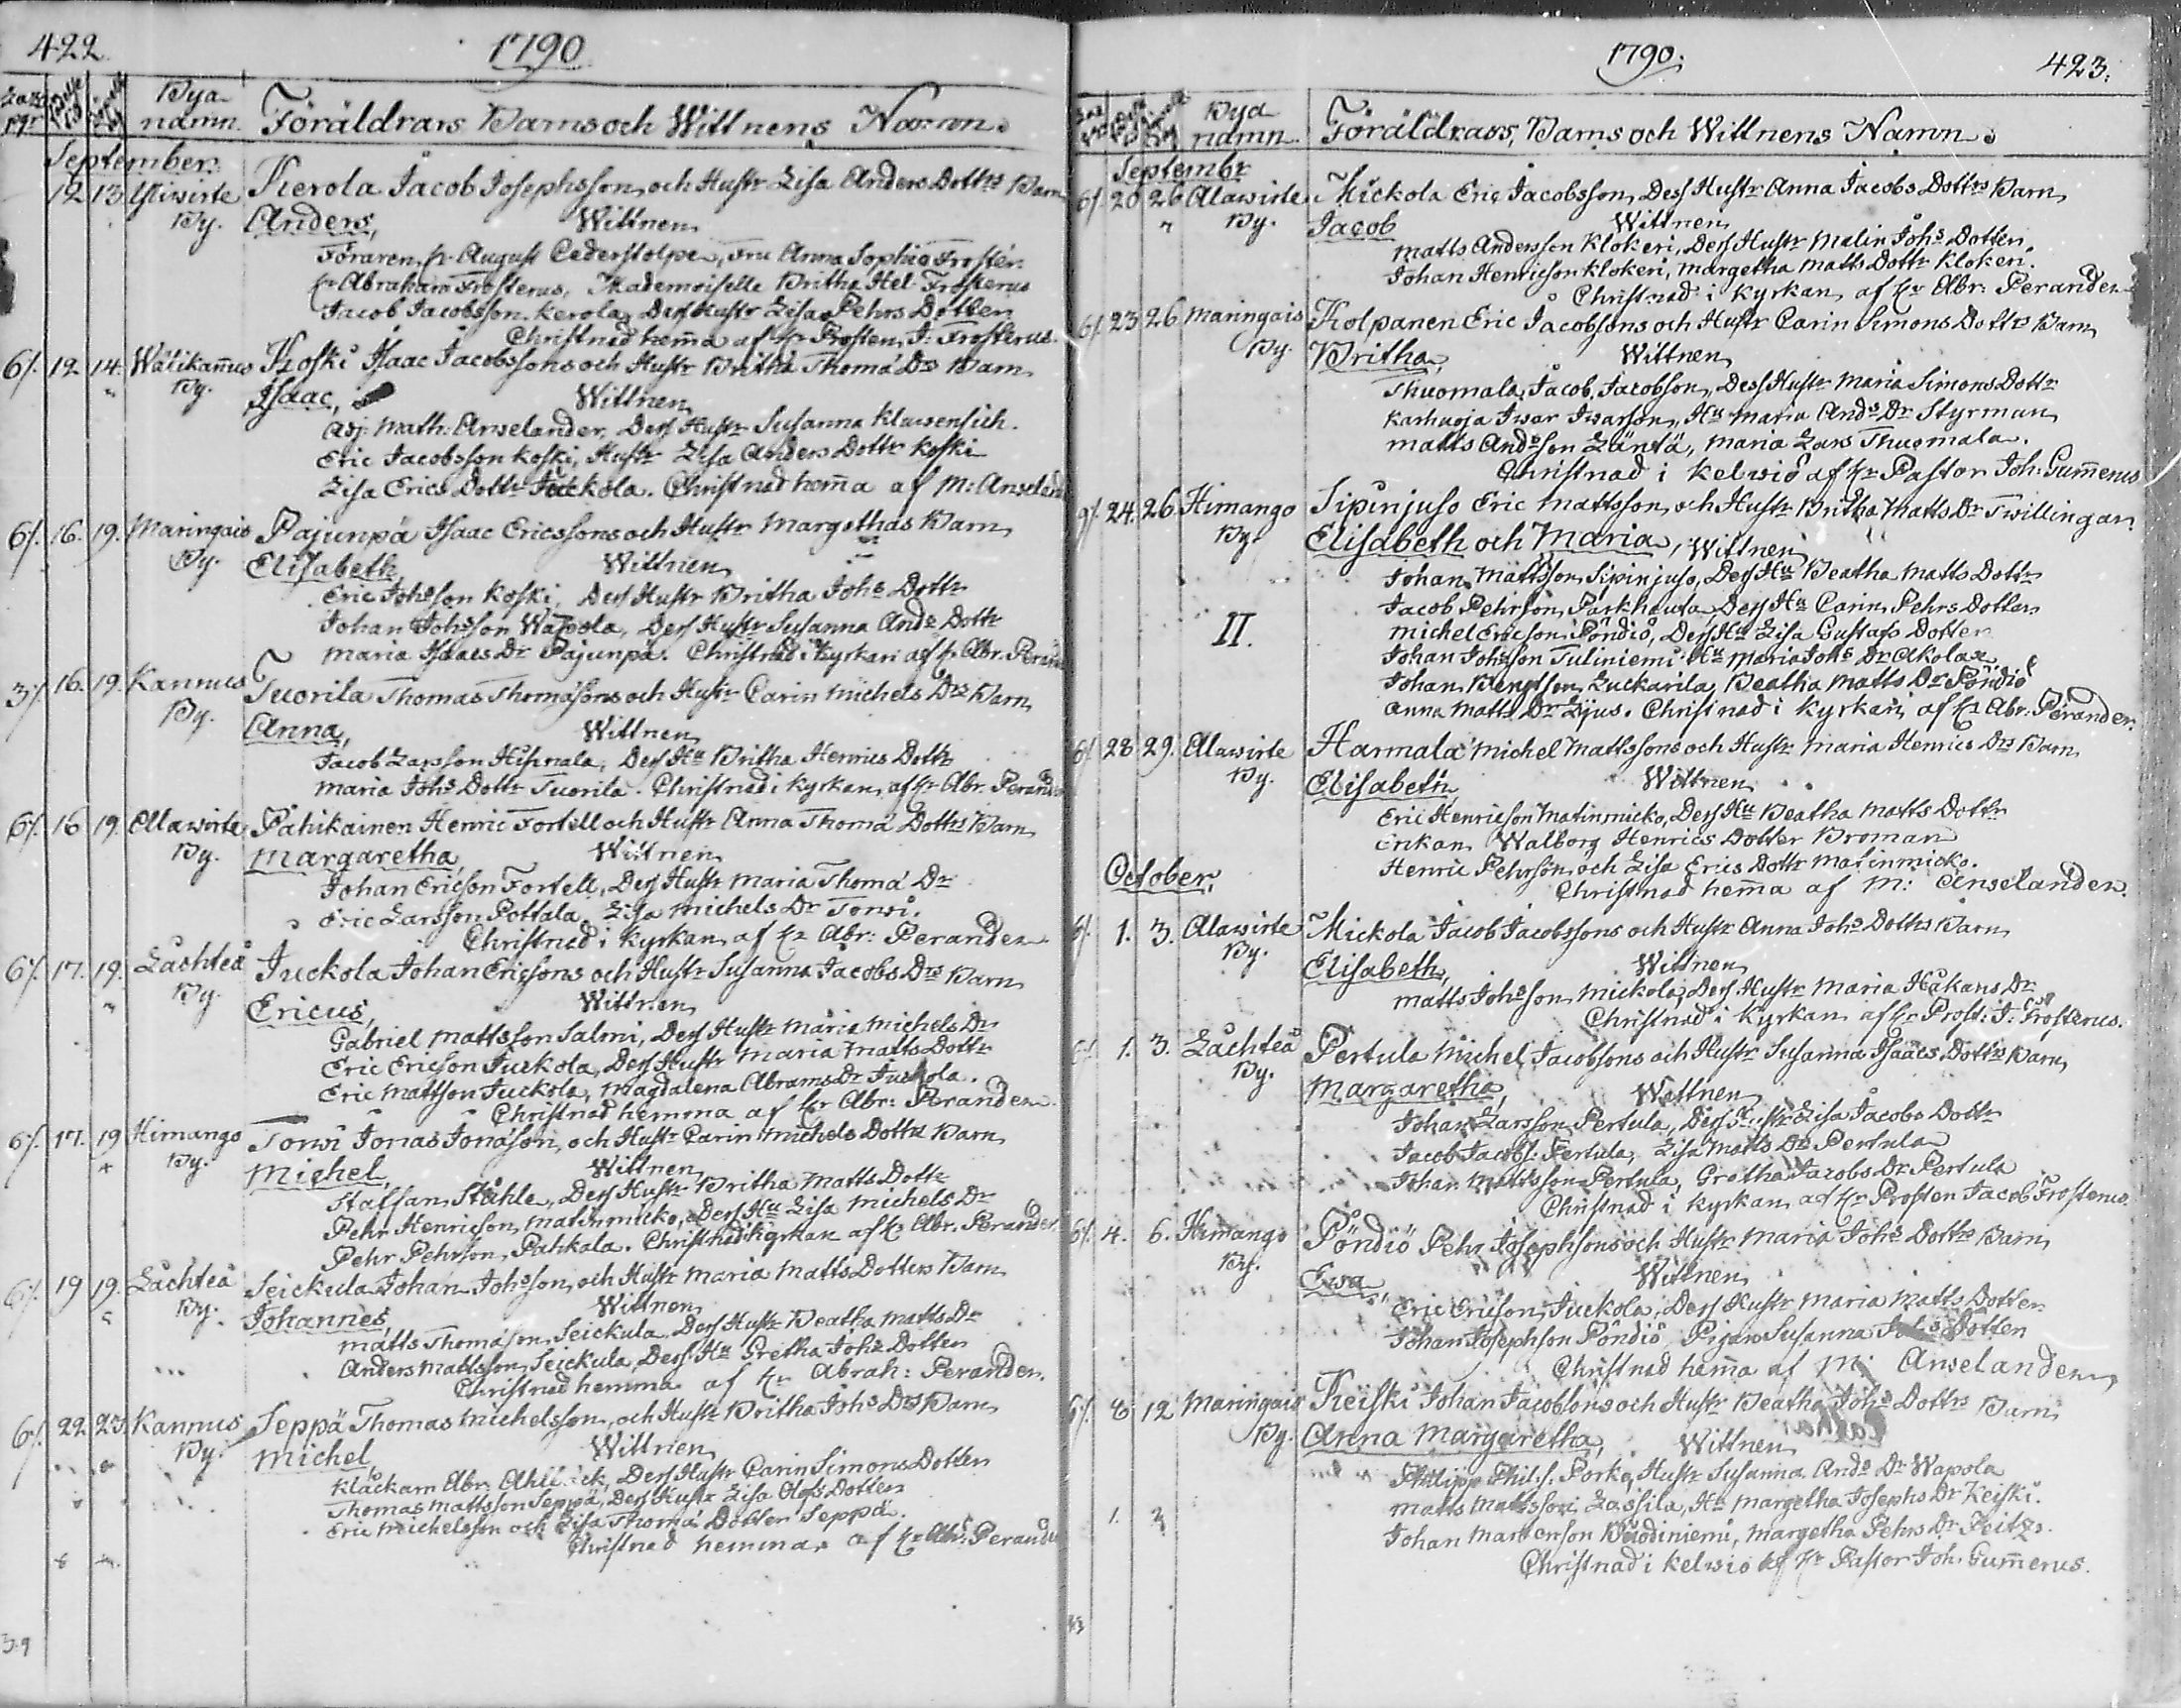 422.
1790
Bya
namn.
Föräldrars Barns och Wittnens Namn.
September.
12 13 Ylliwirte Kerola Jacob Josephsson, och Hustr Lisa Anders Dotters Barn
By. Anders, Wittnen
Föraren, Hr August Cederstolpe, Fru Anna Sophia Froster.
Hr Abraham Frosterus, Mademoiselle Britha Hel. Frosterus
Jacob Jacobsson Kerola, Dess Hustr Lisa Pehrs Dotter
Christnad hemma af Hr Prosten, J: Frosterus.
6/. 12 14. Wälikannus Koski Isaac Jacobssons och Hustr Britha Thoma Drs Barn
By. Isaac, Wittnen
Adj: Math: Anselander, Dess Hustr Susanna Klawensich.
Eric Jacobsson Koski, Hustr Lisa Anders Dottr Koski
Lisa Erics Dottr Juckola. Christnad hemma af M: Anseland
6/. 16. 19. Maringais Pajunpä Isaac Ericssons och Hustr Margethas Barn
By. Elisabeth Wittnen
Eric Johsson Koski, Dess Hustr Britha Johs Dottr
Johan Johsson Wapola, Dess Hustr Susanna Ands Dottr
Maria Isaacs Dr Pajunpä. Christnad i Kyrkan af Hr Abr. Peran
3/. 16. 19. Kannus Tuorila Thomas Thomæsons och Hustr Carin Michels Drs Barn
By. Anna, Wittnen
Jacob Larsson Hihnala, Dess Hu Britha Henrics Dottr
Maria Johs Dottr Tuorila. Christnad i Kyrkan, af Hr Abr. Perand
6/. 16 19. Allawirte Pahikainen Henric Fortell och Hustr Anna Thoma Dotters Barn
By. Margaretha, Wittnen
Johan Ericson Fortell, Dess Hustr Maria Thoma Dr
Eric Larsson Pottala Lisa Michels Dr Torwi.
Christnad i Kyrkan af Hr Abr: Perander
6/. 17. 19. Låchteå Juckola Johan Ericsons och Hustr Susanna Jacobs Drs Barn
By. Ericus, Wittnen
Gabriel Mattsson Salmi, Dess Hustr Maria Michels Dr
Eric Ericson Juckola, Dess Hustr Maria Matts Dottr
Eric Mattson Juckola, Magdalena Abrams Dr Juckola.
Christnad hemma af Hr Abr: Perander
6/. 17. 19 Himango Torwi Jonas Jonasson, och Hustr Carin Michels Dotter Barn
By. Michel, Wittnen
Staffan Ståhle, Dess Hustr Britha Matts Dottr
Pehr Henricson, Matinmicko, Dess Hu Lisa Michels Dr
Pehr Pehrson, Pahkala. Christnad i Kyrkan af Hr Abr. Perander.
6/. 19 19. Låchteå Seickula Johan Johsson, och Hustr Maria Matts Dotters Barn
By. Johannes, Wittnen
Matts Thomæson, Seickula Dess Hustr Beatha Matts Dr
Anders Mattsson, Seickula, Dess Hu Gretha Johs Dotter
Christnad hemma af Hr Abrah: Perander.
6/. 22. 23. Kannus Seppä Thomas Michelsson, och Hustr Britha Johs Drs Barn
By. Michel Wittnen
Klockarn Abr. Ahlbäck, Dess Hustr Carin Simons Dotter
Thomas Mattsson Seppä, Dess Hustr Lisa Olofs Dotter
Eric Michelsson och Lisa Thoma Dotter Seppä.
Christnad hemma, af Hr Abr: Perande
1790. 423.
Bya
namn.
Föräldrars, Barns och Wittnens Namn.
Septembr
6/. 20 26 Alawirte Mickola Eric Jacobsson, Dess Hustr Anna Jacobs Dotters Barn
By. Jacob Wittnen
Matts Andersson Klokeri, Dess Hustr Malin Johs Dotter.
Johan Henricson Klokeri, Margetha Matts Dottr Klokeri.
Christnad i Kyrkan af Hr Abr: Perander
6/. 23 26 Maringais Kolpanen Eric Jacobsons och Hustr Carin Simons Dotters Barn
By. Britha, Wittnen
Thuomala, Jacob Jacobson, Dess Hustr Maria Simons Dottr
Karhuoja Iwar Iwarson, Hu Maria Ands Dr Styrman
Matts Andsson Läntä, Maria Lars Thuomala.
Christnad i Kelwiå af Hr Pastor Joh: Gummerus
9/. 24. 26 Himango Sipinjuso Eric Mattsson, och Hustr Britha Matts Dr Twillingar
By. Elisabeth och Maria, Wittnen
Johan Mattsson, Sipinjuso, Dess Hu Beatha Matts Dottr
Jacob Pehrson, Parkhausa, Dess Hu Carin Pehrs Dotter
II. Michel Ericson Pöndiö, Dess Hu Lisa Gustafs Dotter
Johan Johsson Tuliniemi Hu Maria Johs Dr Akola
Johan Bengtson Luckarila, Beatha Matts Dr Pöndiö
Anna Matts Dr Zijus. Christnad i Kyrkan, af Hr Abr: Perander.
6/. 28 29. Alawirte Harmala Michel Mattssons och Hustr Maria Henrics Drs Barn
By. Elisabeth Wittnen
Eric Henricson Matinmicko, Dess Hu Beatha Matts Dottr
Enkan Walborg Henrics Dotter Broman
Henric Pehrson, och Lisa Erics Dottr Matinmicko.
Christnad hemma af M: Anselander.
October,
6/. 1. 3. Alawirte Mickola Jacob Jacobssons och Hustr Anna Johs Dotters Barn
By. Elisabeth, Wittnen
Matts Johsson Mickola, Dess Hustr Maria Håkans Dr
Christnad i Kyrkan af Hr Prost: J: Frosterus.
6/. 1. 3. Låchteå Pertula Michel Jacobsons och Hustr Susanna Isaacs Dotters Barn
By. Margaretha, Wittnen
Johan Larsson Pertula, Dess Hustr Lisa Jacobs Dottr
Jacob Jacobs: Pertula, Lisa Matts Dr Pertula
Johan Mattsson Pertula, Gretha Jacobs Dr Pertula
Christnad i Kyrkan af Hr Prosten Jacob Frosterus.
6/. 4. 6. Himango Pöndiö Pehr Josephsons och Hustr Maria Johs Dotters Barn
By. Ewa, Wittnen
Eric Ericson, Juckola, Dess Hustr Maria Matts Dotter
Johan Josephson Pöndiö Pigan Susanna Johs Dotter
Christnad hemma af M: Anselander,
6/. 8 12 Maringais Keiski Johan Jacobsons och Hustr Beatha Johs Dotters Barn
By. Anna Margaretha, Wittnen
Philipp Phil:s: Porko, Hustr Susanna Ands Dr Wapola
Matts Mattsson, Lassila, Hu Margetha Josephs Dr Keiski.
Johan Mårtenson, Margetha Pehrs Dr Peitzo.
Christnad i Kelwiå af Hr Pastor Joh. Gummerus.